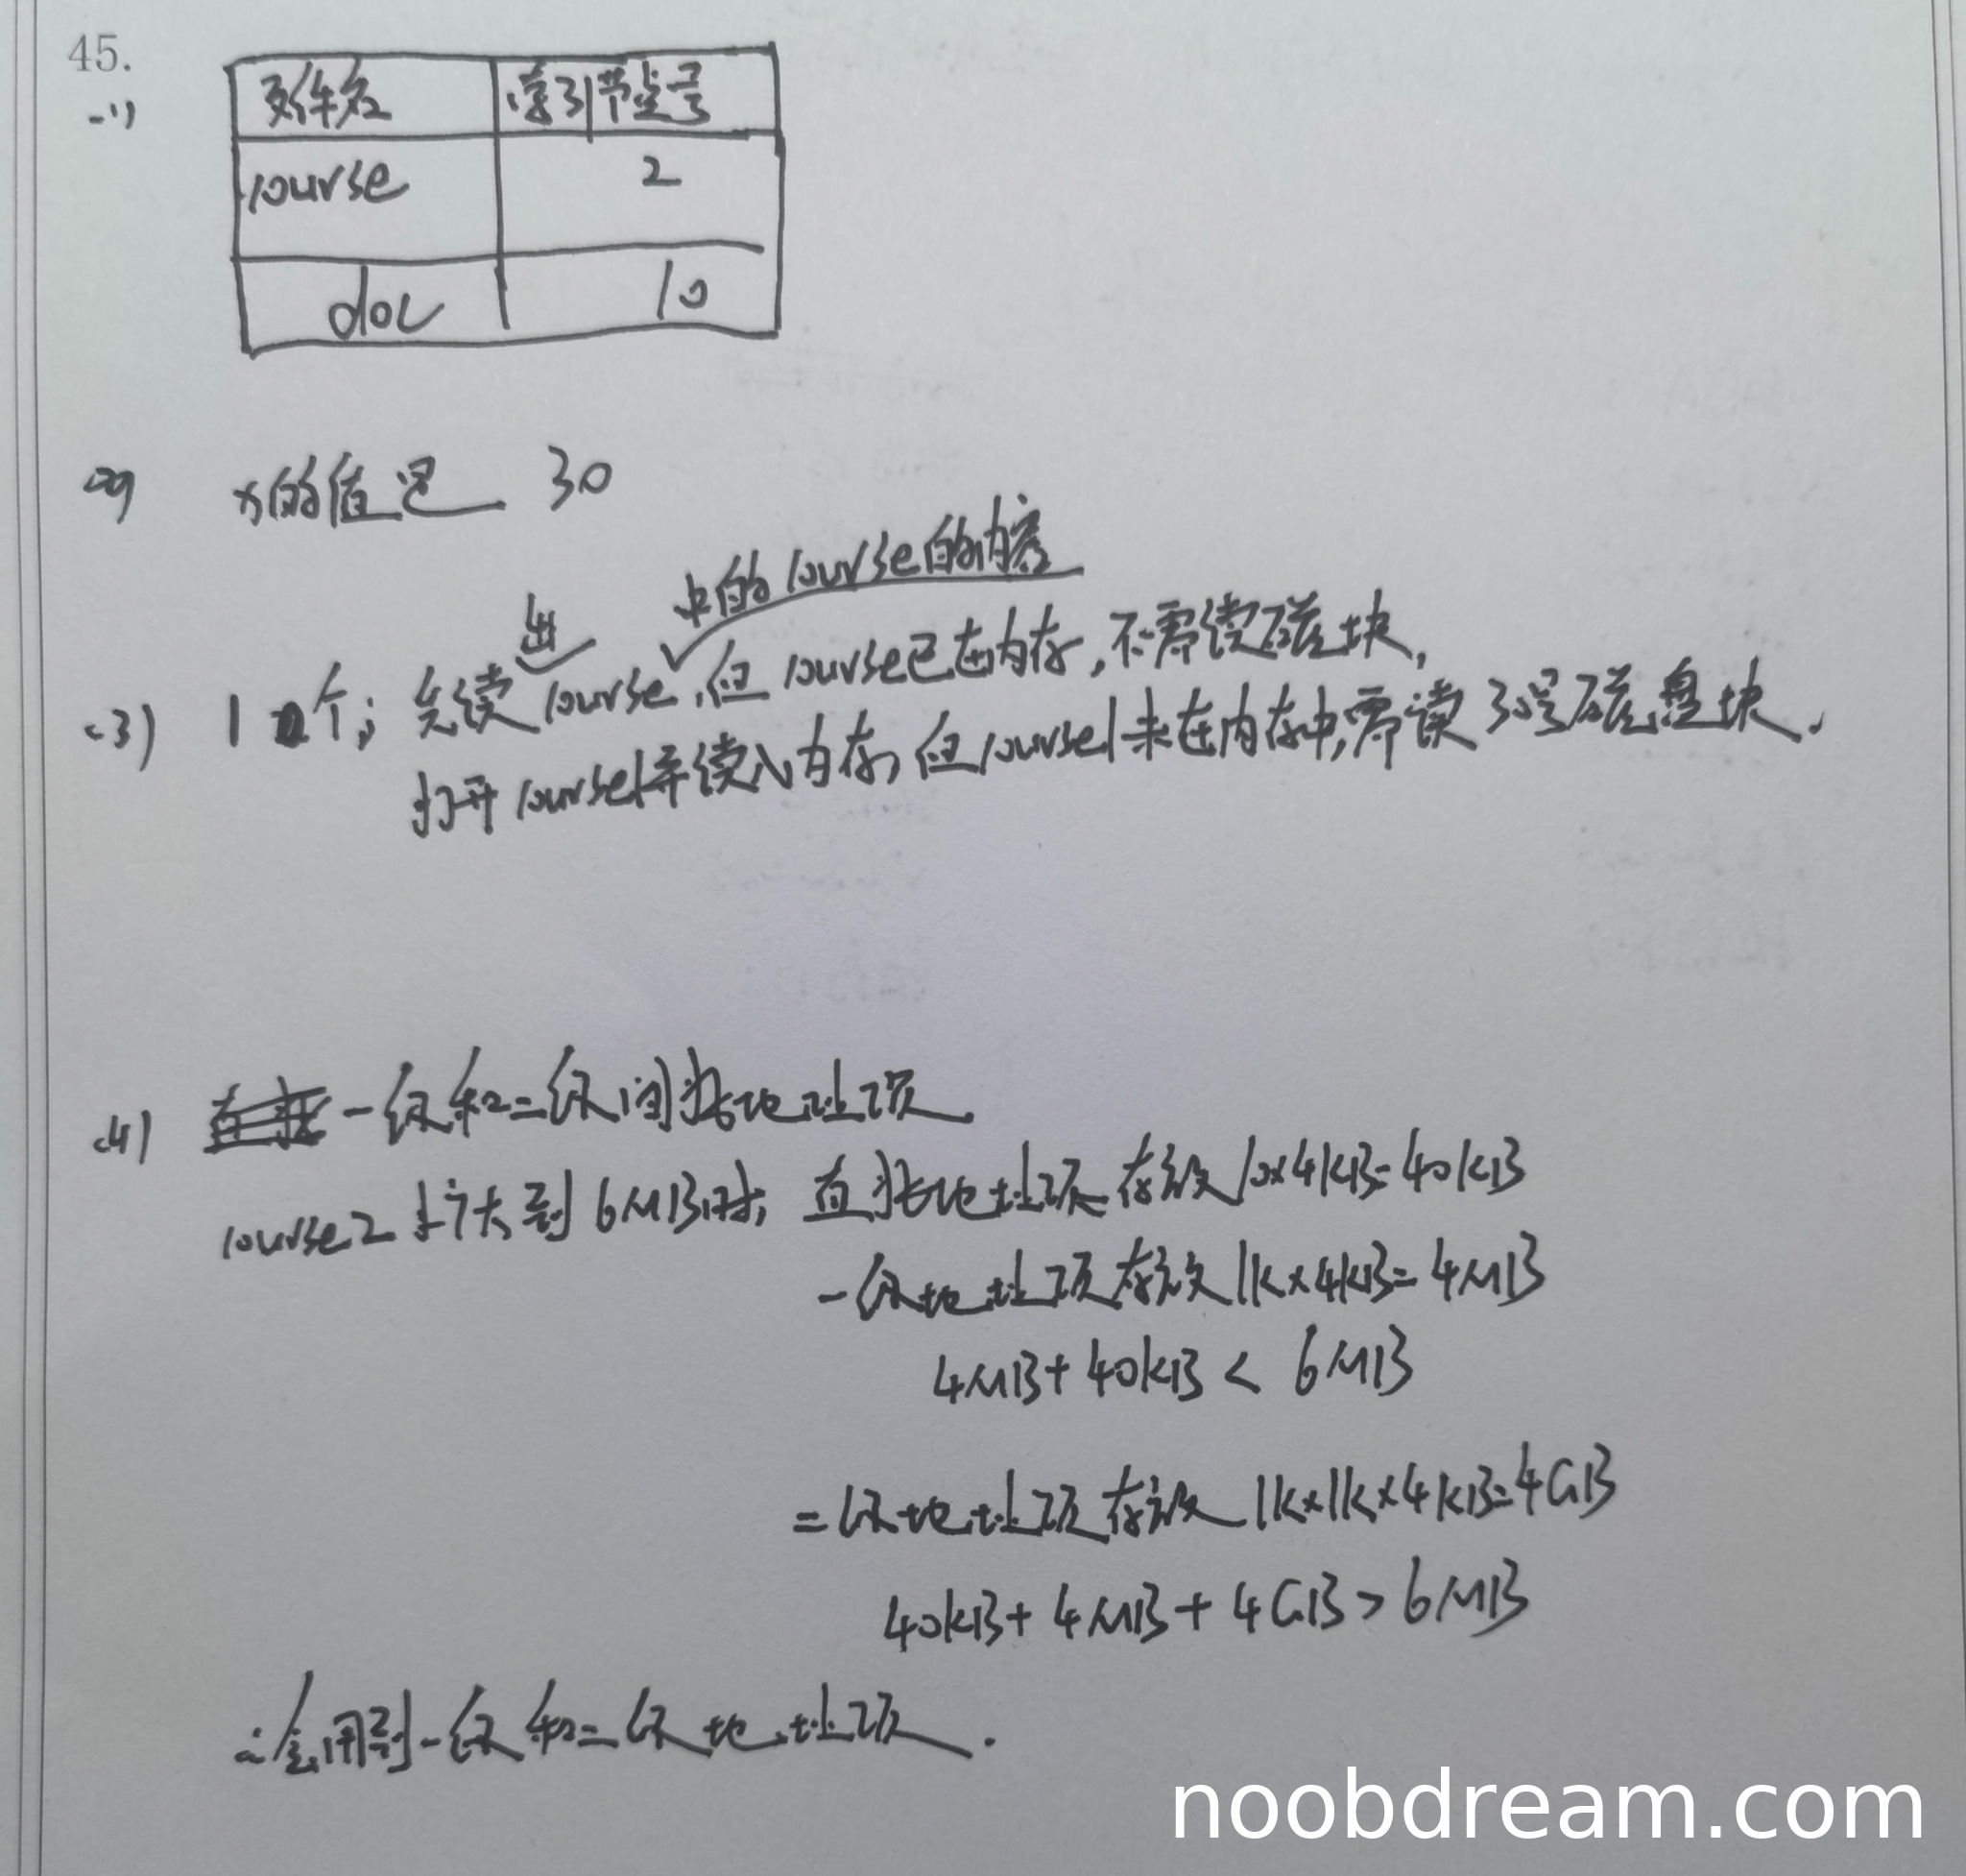 45.
(1)
文件名 索引节点号
course 2
doc 10
(2) x的值是 30
中的course的内容
出
(3) 1 个; 先读course,但course已在内存,不需读磁块,
打开course1并读入内存,但course1未在内存中,需读30号磁盘块.
(4) 直接一级和二级间接地址项.
course2扩大到6MB时; 直接地址项存放10×4KB=40KB
一级地址项存放1K×4KB=4MB
4MB+40KB < 6MB
二级地址项存放1K×1K×4KB=4GB
40KB+4MB+4GB>6MB
∴会用到一级和二级地址项.
noobdream.com